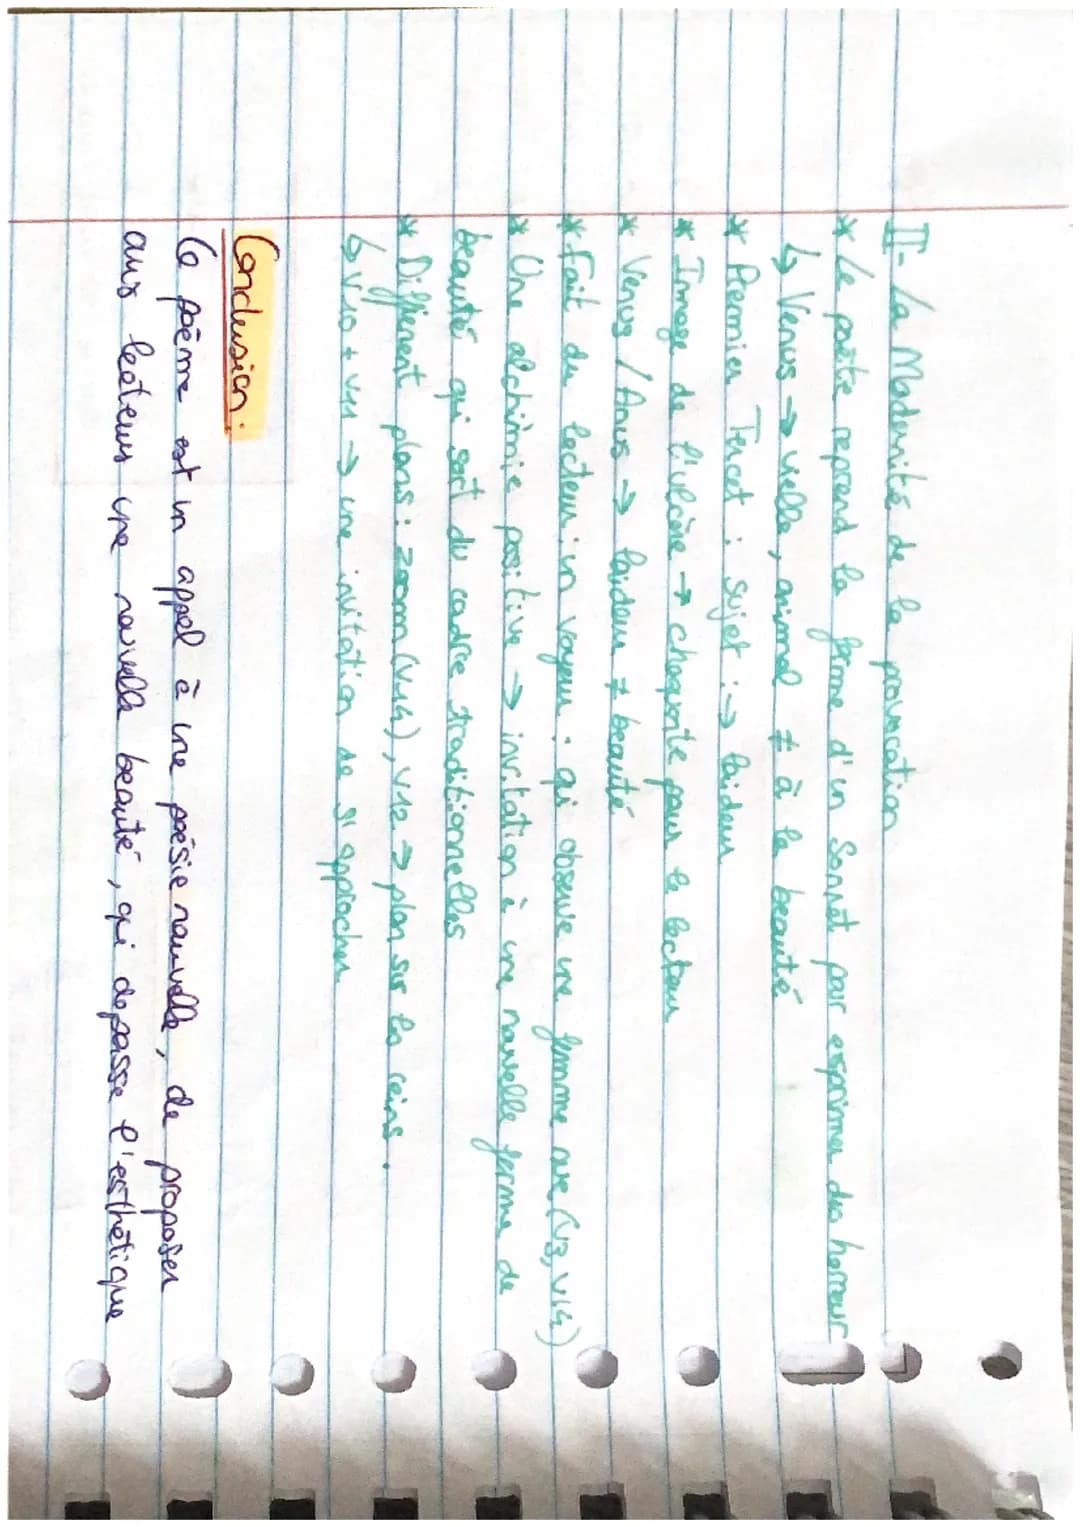 II- La Modernité de la provocation
* Le poète reprend la forme d'un Sonnet par exprimer des horreur
↳ Venus → vielle, animal ≠ à la beauté
* Premier Tercet : sujet : → laideur
* Image de l'ulcère → choquante pour le lecteur
* Venus / Anus → laideur ≠ beauté
* Fait du lecteur : un voyeur : qui observe une femme nue (V3, V14)
* Une alchimie positive → invitation à une nouvelle forme de
beauté qui sort du cadre traditionnelles
* Différent plans : zoom (V14), V12 → plan sur les reins.
↳ V10 + V11 → une invitation de s'approcher
Conclusion :
Le poème est un appel à une poésie nouvelle, de proposer
aux lecteurs une nouvelle beauté, qui depasse l'esthétique